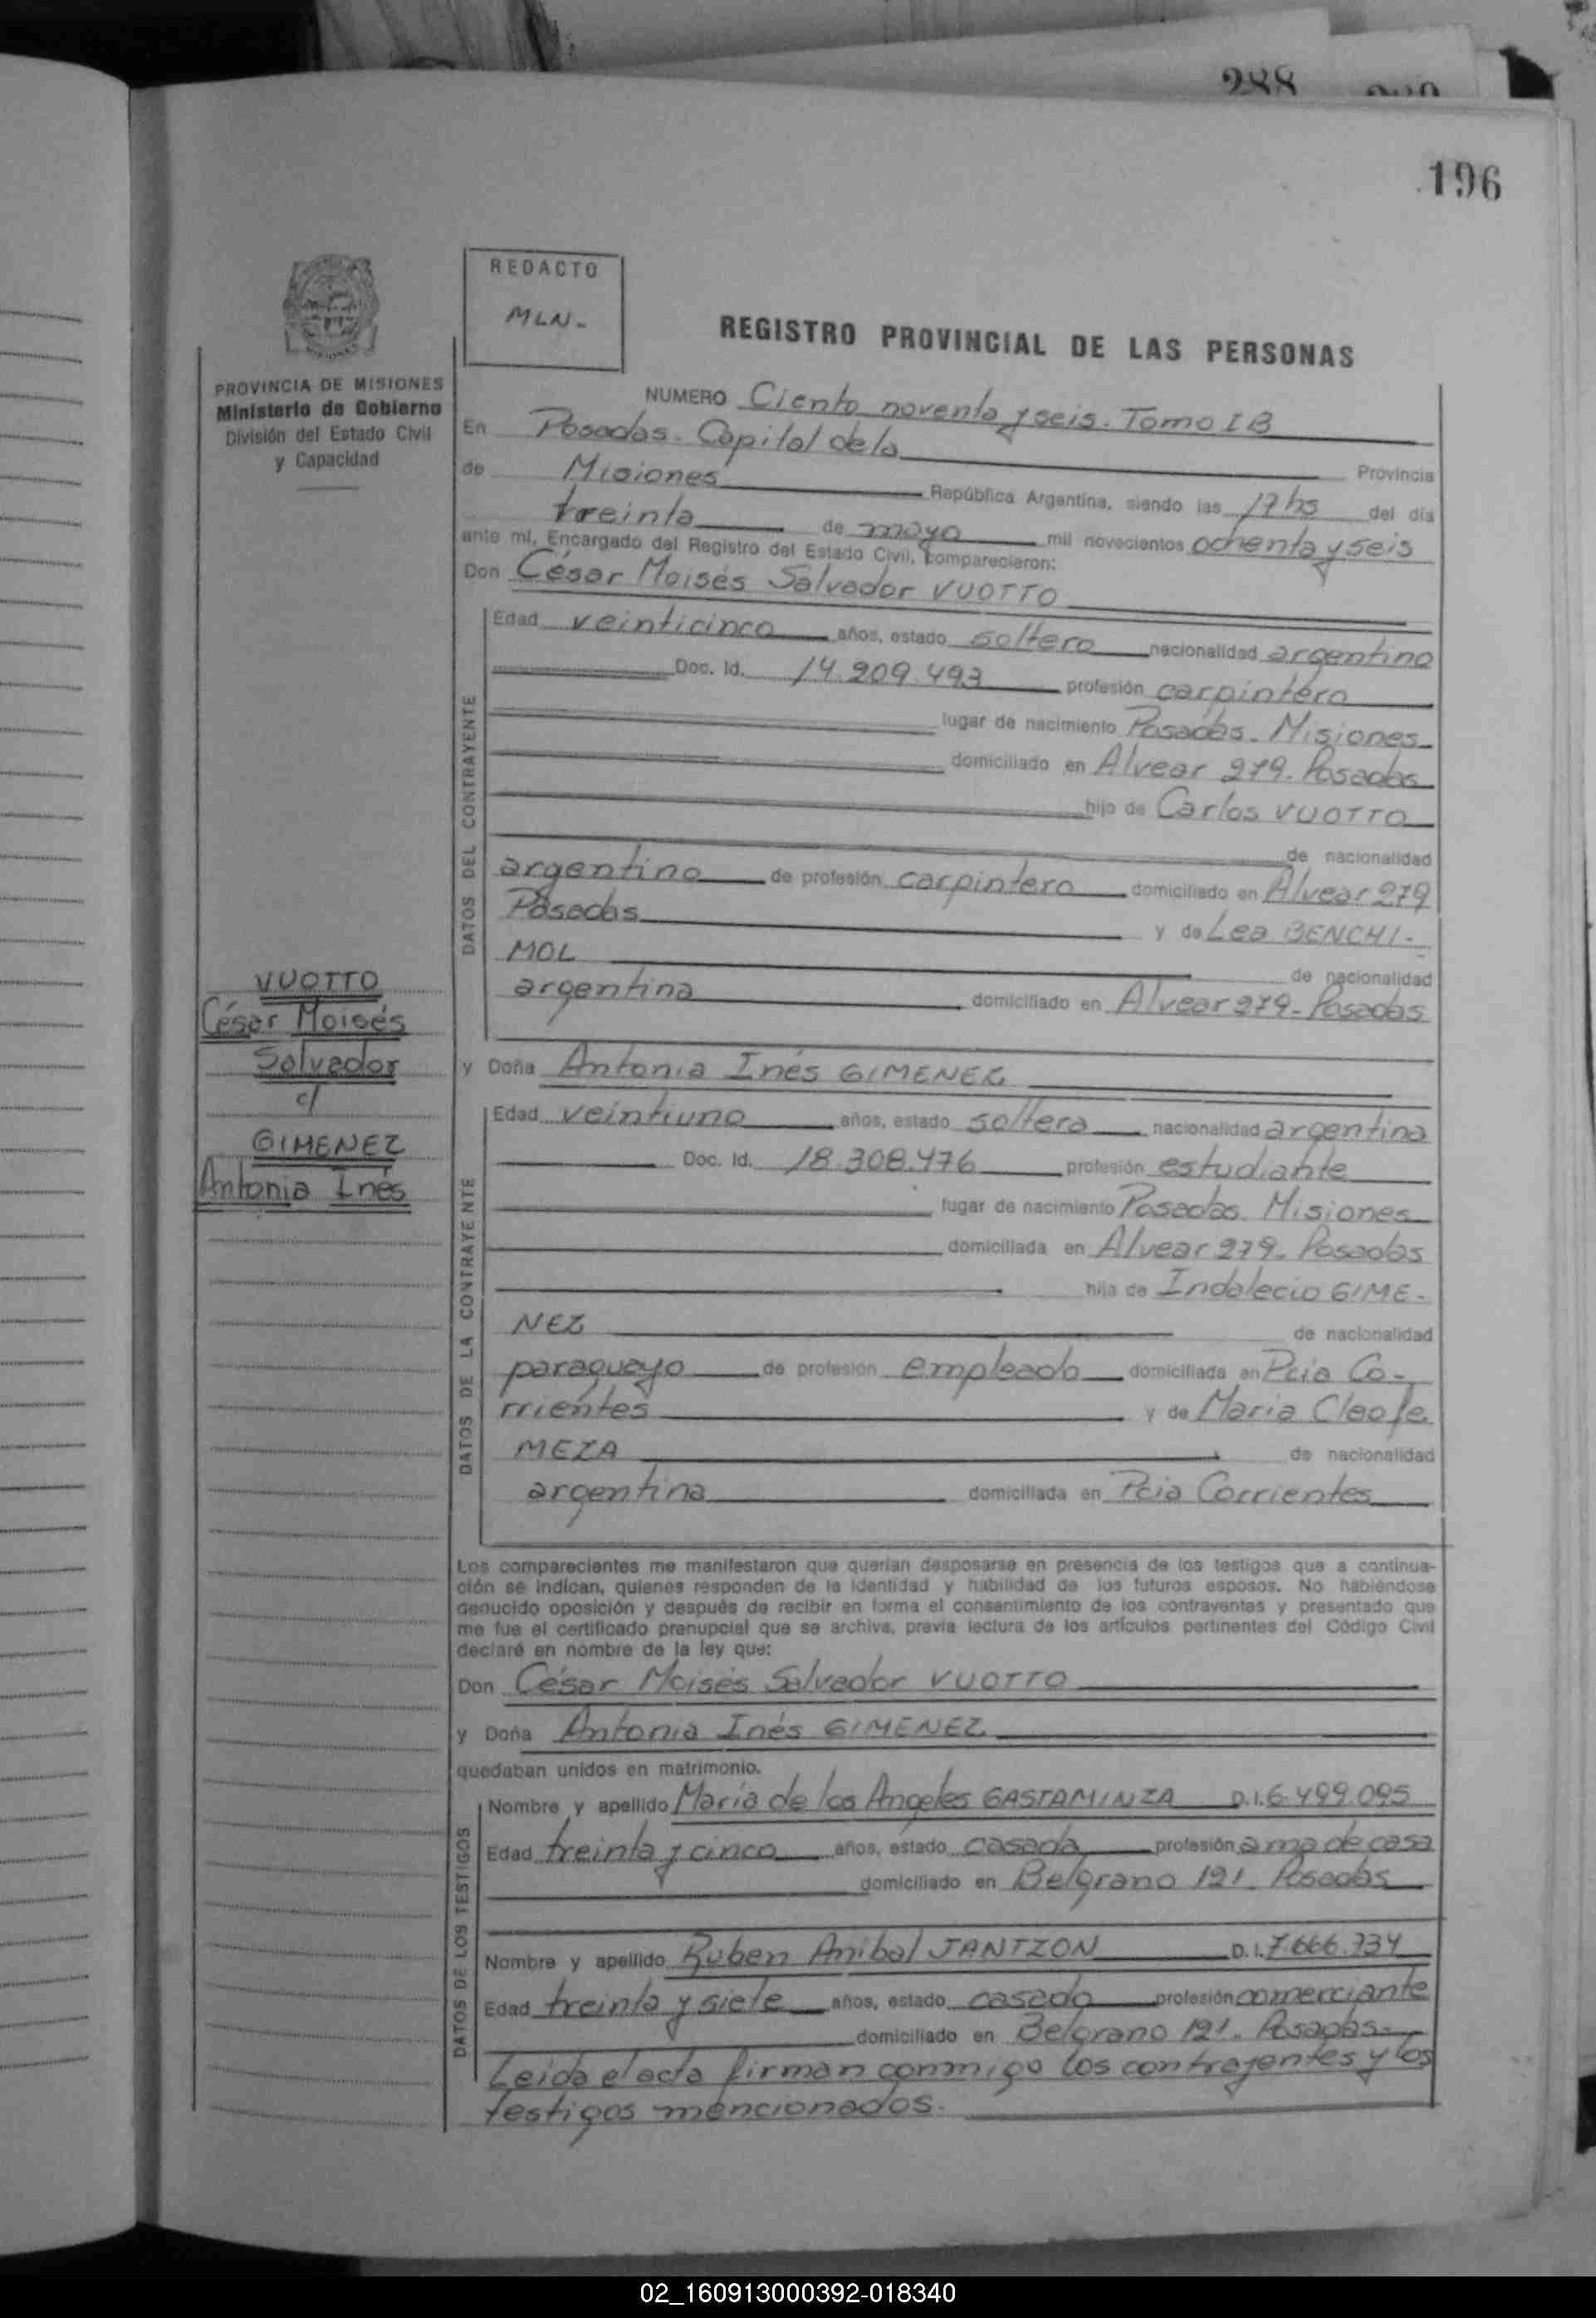 288
196
REDACTO
MLN-
REGISTRO PROVINCIAL DE LAS PERSONAS
PROVINCIA DE MISIONES
Ministerio de Gobierno
División del Estado Civil
y Capacidad
MISIONES
NUMERO Ciento noventa y seis. Tomo I B
En Posadas. Capital de la Provincia
de Misiones República Argentina, siendo las 17 hs del día
treinta de mayo mil novecientos ochenta y seis
ante mí, Encargado del Registro del Estado Civil, comparecieron:
Don César Moisés Salvador VUOTTO
DATOS DEL CONTRAYENTE
Edad veinticinco años, estado soltero nacionalidad argentino
Doc. Id. 14.209.493 profesión carpintero
lugar de nacimiento Posadas. Misiones
domiciliado en Alvear 279. Posadas
hijo de Carlos VUOTTO
de nacionalidad
argentino de profesión carpintero domiciliado en Alvear 279
Posadas y de Lea BENCHI-
MOL de nacionalidad
argentina domiciliado en Alvear 279- Posadas
VUOTTO
César Moisés
Salvador
c/
GIMENEZ
Antonia Inés
y Doña Antonia Inés GIMENEZ
DATOS DE LA CONTRAYENTE
Edad veintiuno años, estado soltera nacionalidad argentina
Doc. Id. 18.308.476 profesión estudiante
lugar de nacimiento Posadas. Misiones
domiciliada en Alvear 279- Posadas
hija de Indalecio GIME-
NEZ de nacionalidad
paraguayo de profesión empleado domiciliada en Pcia Co-
rrientes y de Maria Cleofe
MEZA de nacionalidad
argentina domiciliada en Pcia Corrientes
Los comparecientes me manifestaron que querían desposarse en presencia de los testigos que a continua-
ción se indican, quienes responden de la identidad y habilidad de los futuros esposos. No habiéndose
deducido oposición y después de recibir en forma el consentimiento de los contrayentes y presentado que
me fue el certificado prenupcial que se archiva, previa lectura de los artículos pertinentes del Código Civil
declaré en nombre de la ley que:
Don César Moisés Salvador VUOTTO
y Doña Antonia Inés GIMENEZ
quedaban unidos en matrimonio.
DATOS DE LOS TESTIGOS
Nombre y apellido María de los Angeles GASTAMINZA D.I. 6.499.095
Edad treinta y cinco años, estado casada profesión ama de casa
domiciliado en Belgrano 121. Posadas
Nombre y apellido Ruben Anibal JANTZON D.I. 7.666.734
Edad treinta y siete años, estado casado profesión comerciante
domiciliado en Belgrano 121. Posadas-
Leida el acta firman conmigo los contrayentes y los
testigos mencionados.
02_160913000392-018340